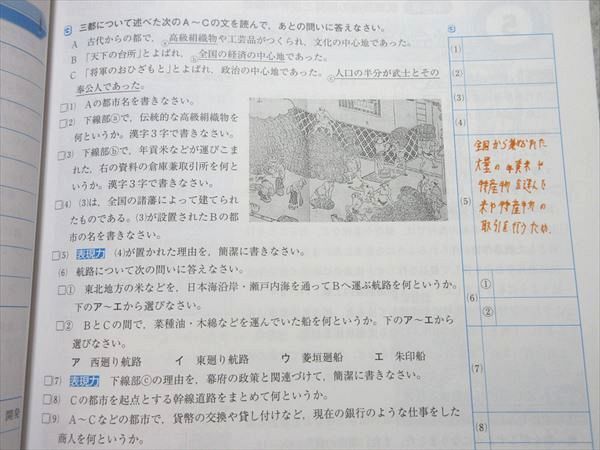 ③ 三都について述べた次のA～Cの文を読んで，あとの問いに答えなさい。
A 古代からの都で，ⓐ高級絹織物や工芸品がつくられ，文化の中心地であった。
B 「天下の台所」とよばれ，ⓑ全国の経済の中心地であった。
C 「将軍のおひざもと」とよばれ，政治の中心地であった。ⓒ人口の半分が武士とその
奉公人であった。
□(1) Aの都市名を書きなさい。
□(2) 下線部ⓐで，伝統的な高級絹織物を
何というか。漢字3字で書きなさい。
□(3) 下線部ⓑで，年貢米などが運びこま
れた，右の資料の倉庫兼取引所を何と
いうか。漢字3字で書きなさい。
□(4) (3)は，全国の諸藩によって建てられ
たものである。(3)が設置されたBの都
市の名を書きなさい。
□(5) 表現力 (4)が置かれた理由を，簡潔に書きなさい。
(6) 航路について次の問いに答えなさい。
□① 東北地方の米などを，日本海沿岸・瀬戸内海を通ってBへ運ぶ航路を何というか。
下のア～エから選びなさい。
□② BとCの間で，菜種油・木綿などを運んでいた船を何というか。下のア～エから
選びなさい。
ア 西廻り航路 イ 東廻り航路 ウ 菱垣廻船 エ 朱印船
□(7) 表現力 下線部ⓒの理由を，幕府の政策と関連づけて，簡潔に書きなさい。
□(8) Cの都市を起点とする幹線道路をまとめて何というか。
□(9) A～Cなどの都市で，貨幣の交換や貸し付けなど，現在の銀行のような仕事をした
商人を何というか。
開発
③
(1)
(2)
(3)
(4)
(5)
全国から集められた
大量の年貢米や
特産物を運んで
米や特産物の
取引を行うため。
(6)
①
②
(7)
(8)